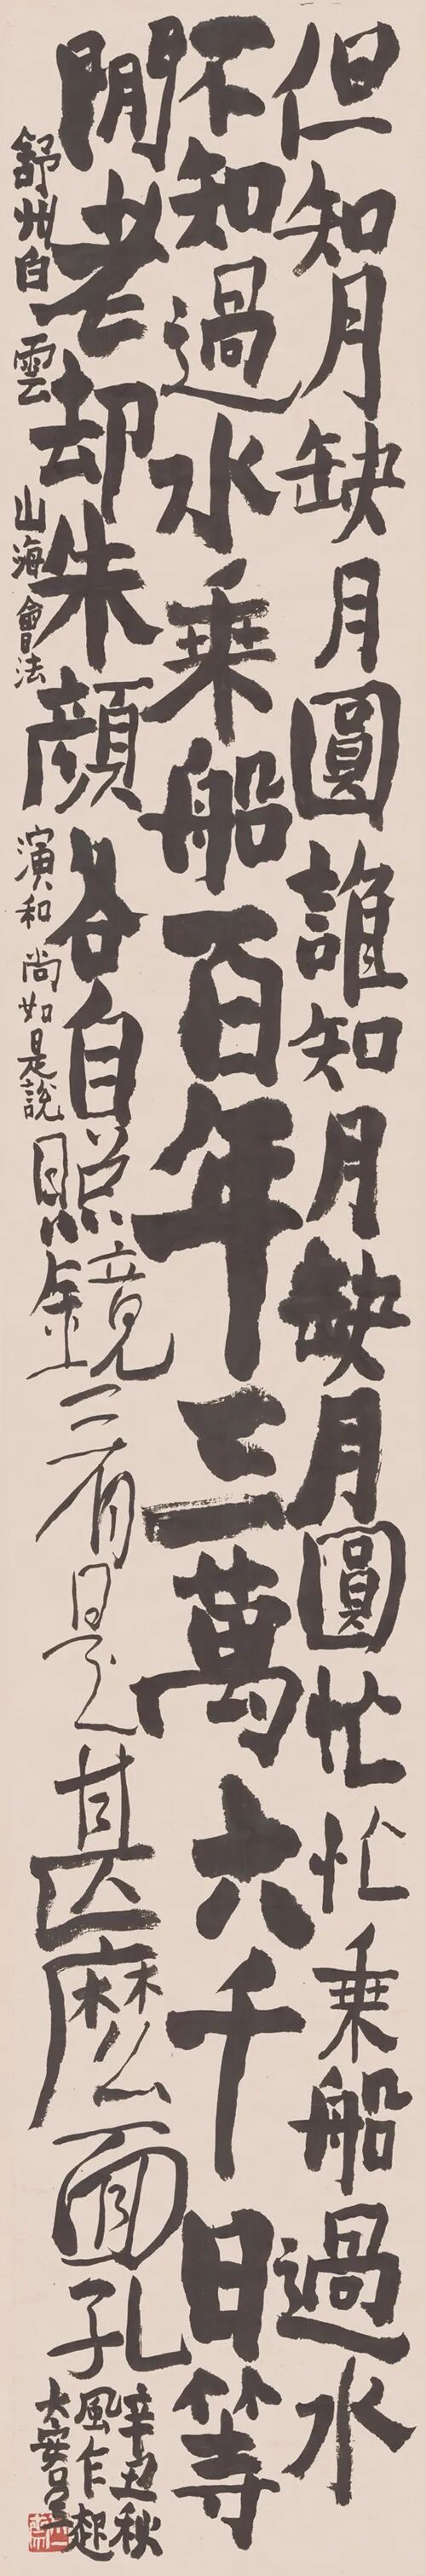 但知月缺月圓誰知月缺月圓忙忙乘船過水
不知過水乘船百年三萬六千日等
閒老却朱顏各自照鏡三看是甚麼面孔
舒州白雲山海會法演和尚如是說
辛丑秋
風乍起